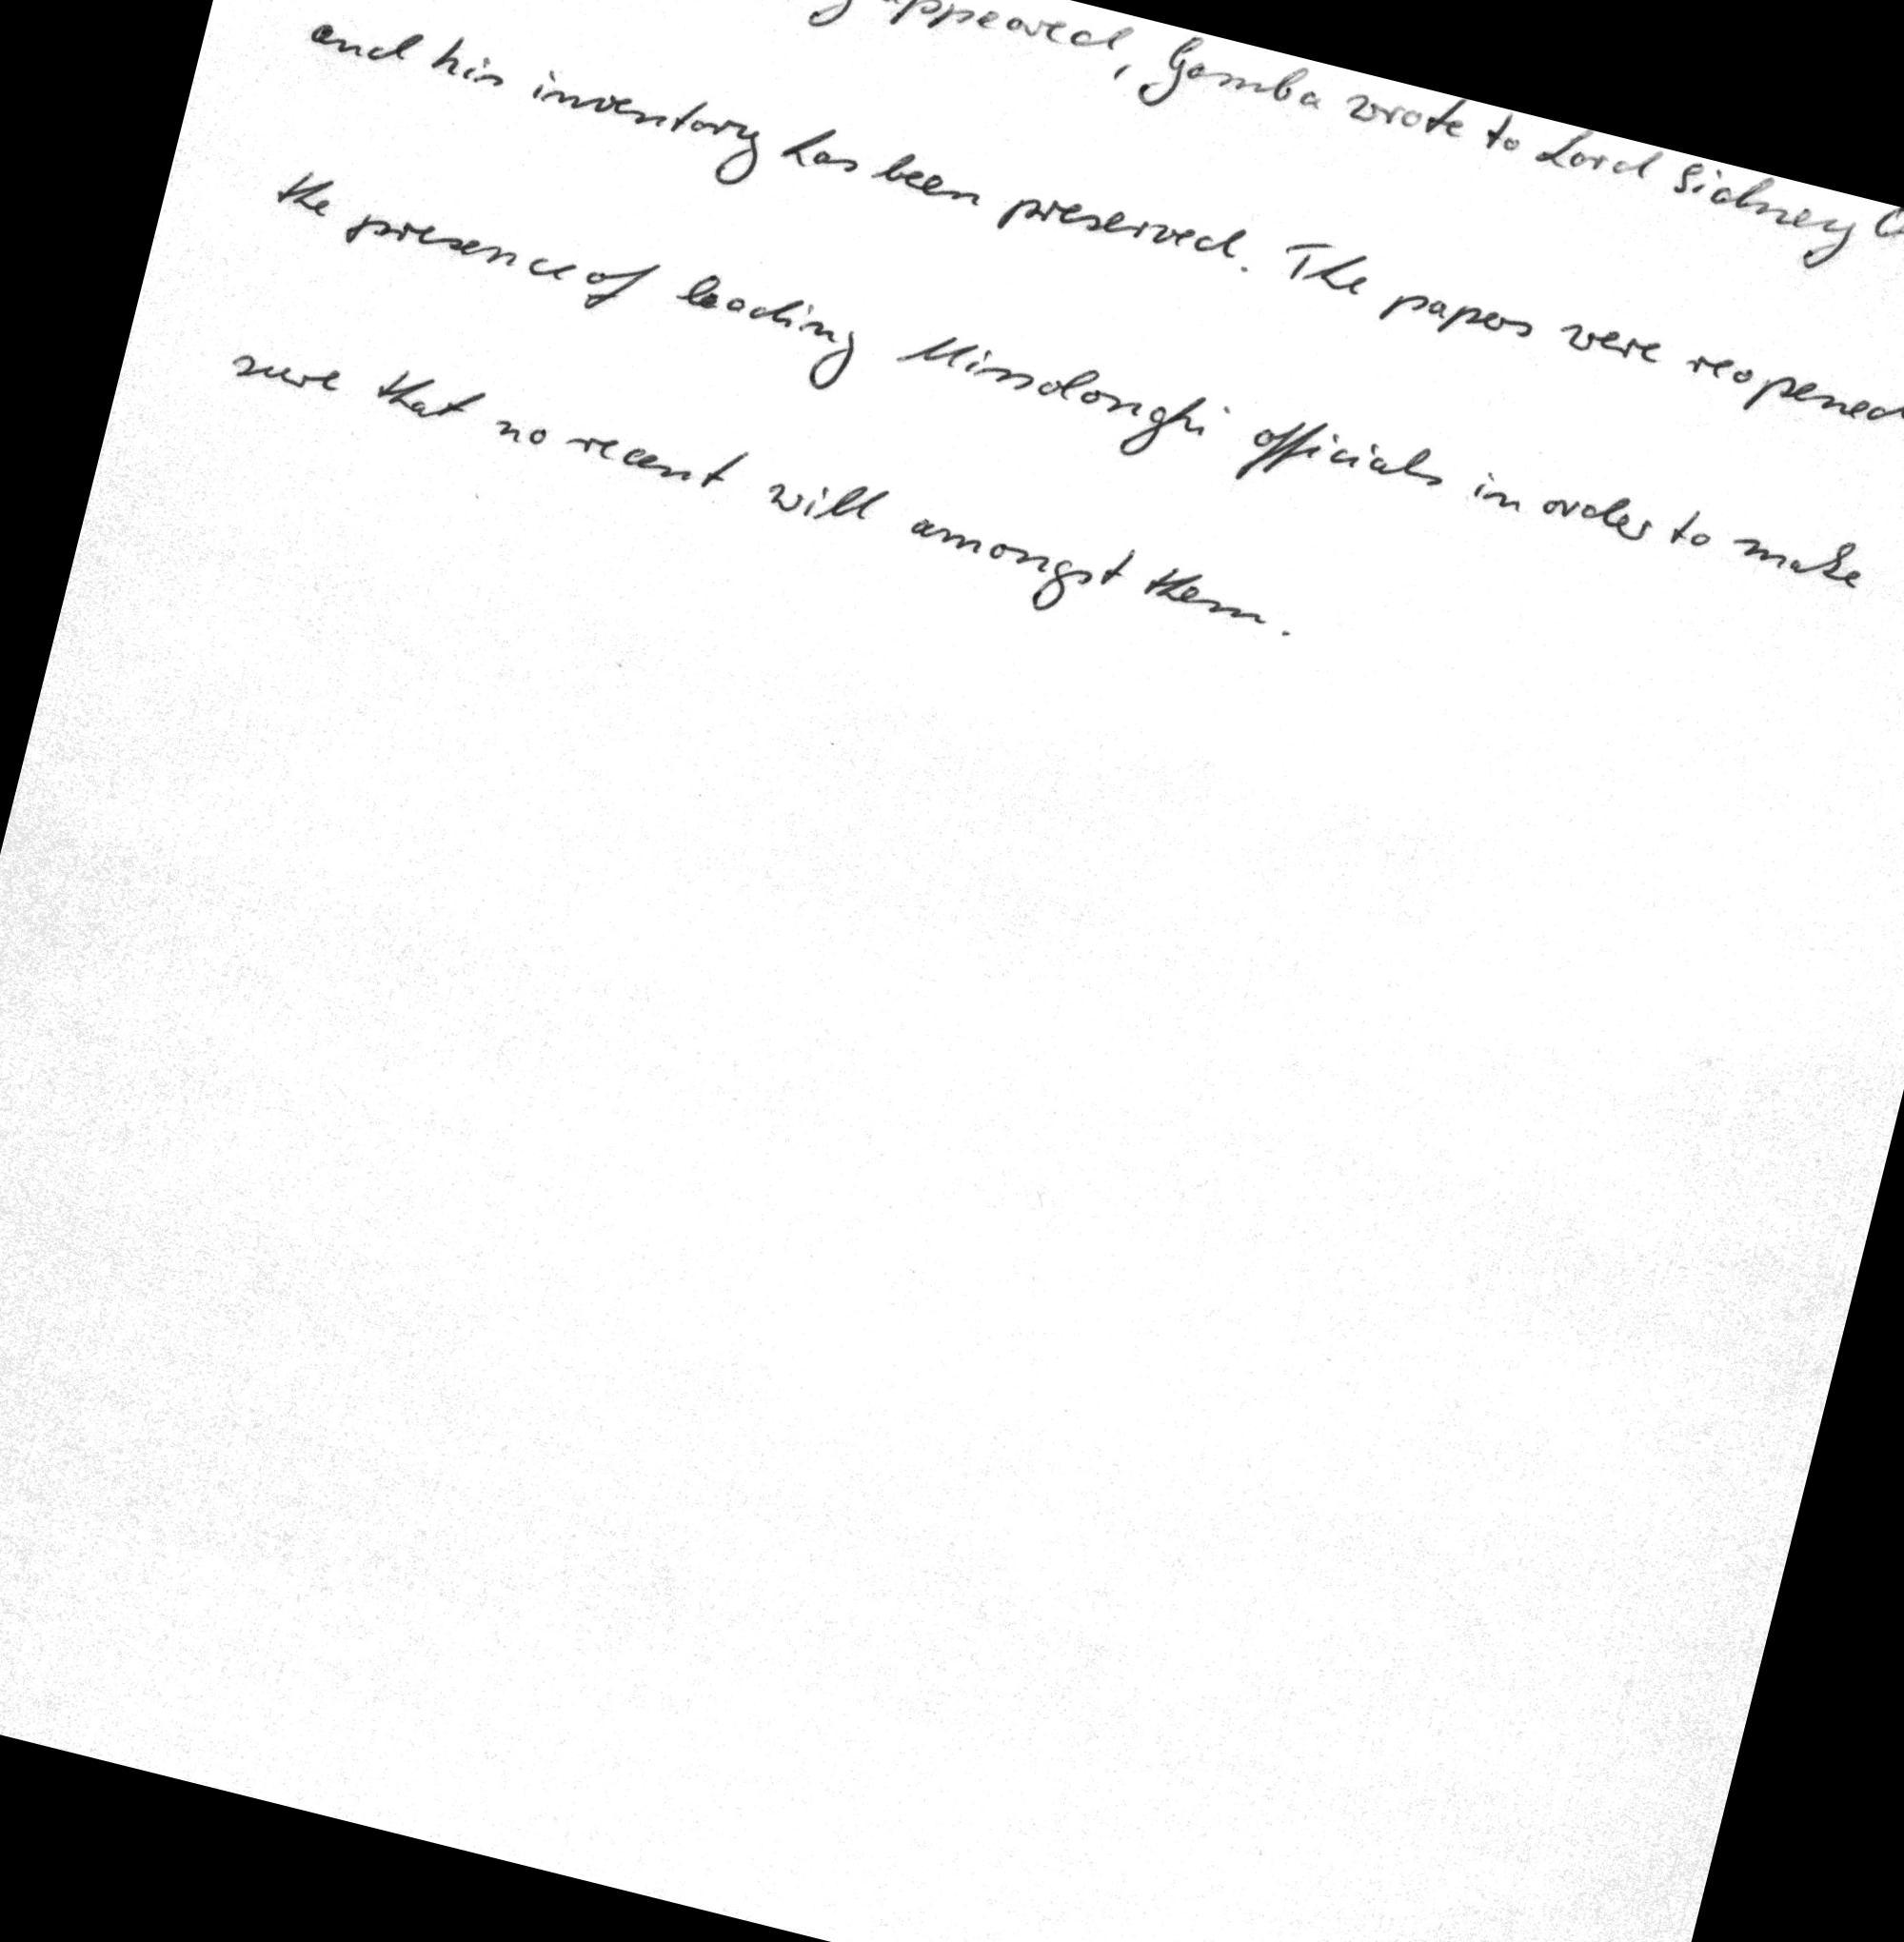 appeared, Gamba wrote to Lord Sidney
and his inventory has been preserved. The papers were reopened
the presence of leading Missolonghi officials in order to make
sure that no recent will amongst them.